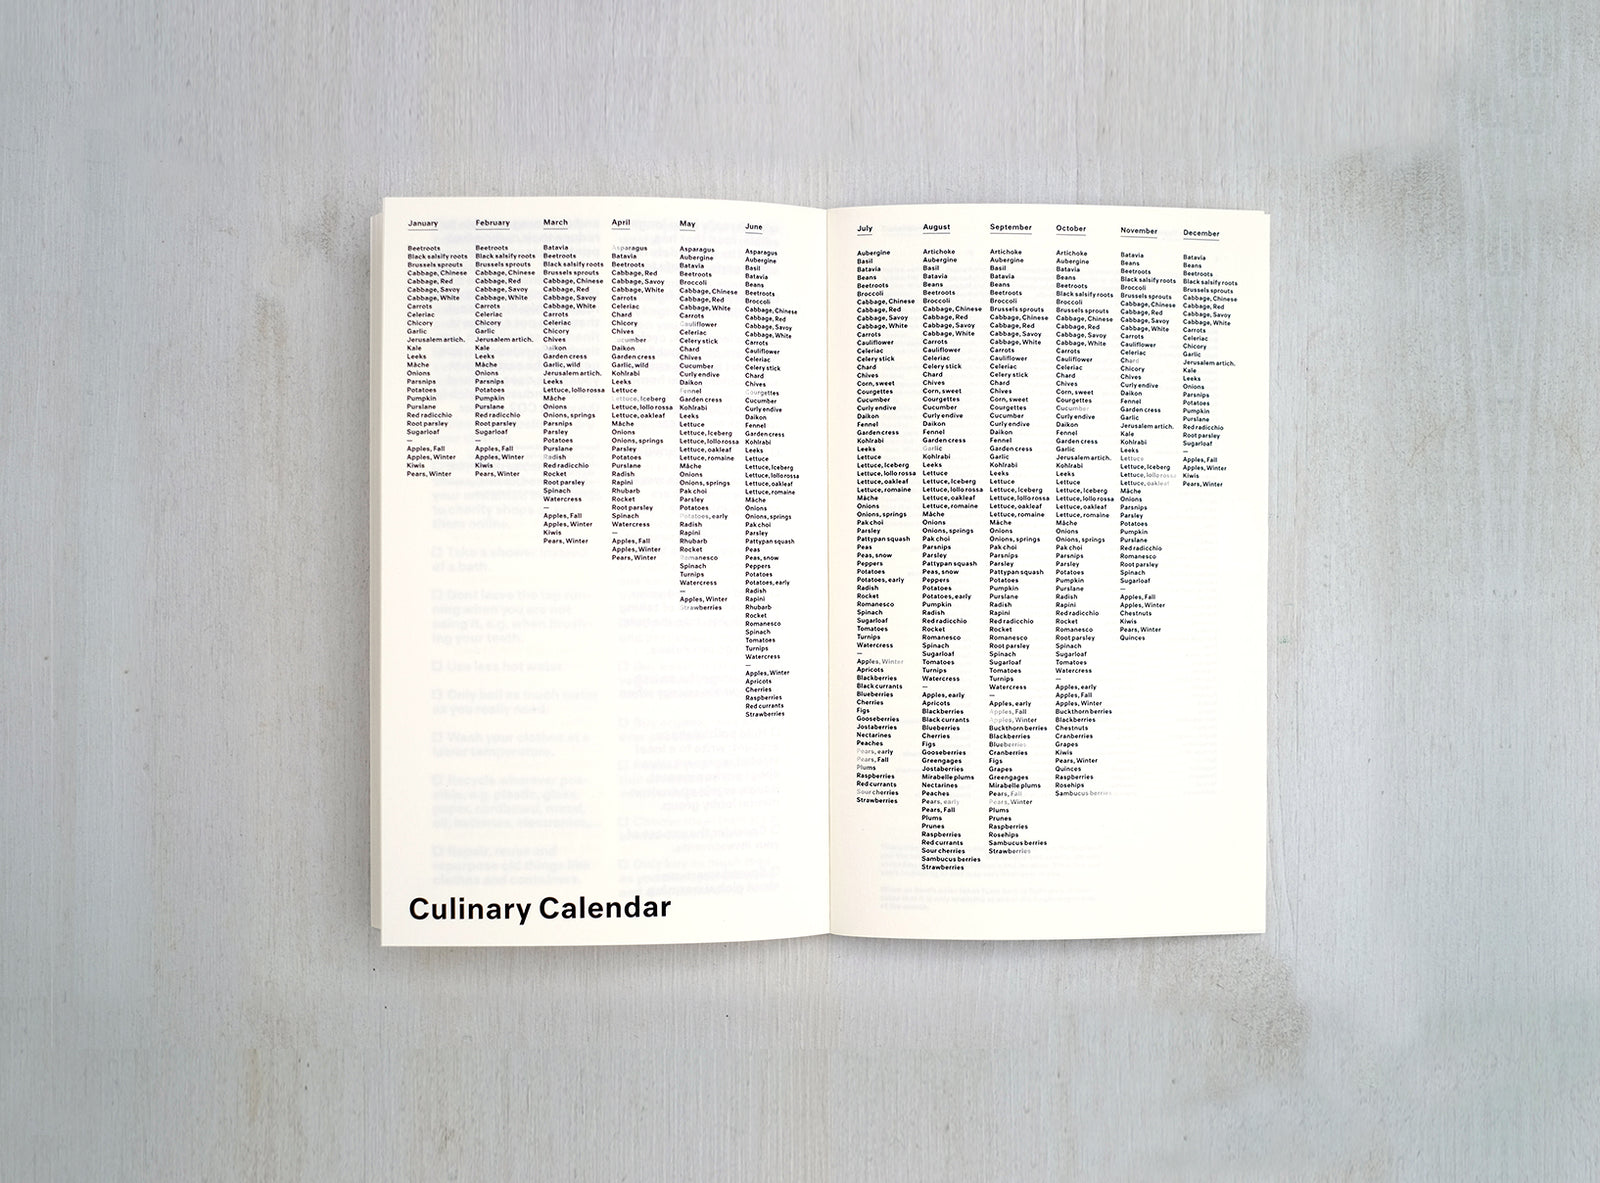 January
Beetroots
Black salsify roots
Brussels sprouts
Cabbage, Chinese
Cabbage, Red
Cabbage, Savoy
Cabbage, White
Carrots
Celeriac
Chicory
Garlic
Jerusalem artich.
Kale
Leeks
Mâche
Onions
Parsnips
Potatoes
Pumpkin
Purslane
Red radicchio
Root parsley
Sugarloaf
—
Apples, Fall
Apples, Winter
Kiwis
Pears, Winter
February
Beetroots
Black salsify roots
Brussels sprouts
Cabbage, Chinese
Cabbage, Red
Cabbage, Savoy
Cabbage, White
Carrots
Celeriac
Chicory
Garlic
Jerusalem artich.
Kale
Leeks
Mâche
Onions
Parsnips
Potatoes
Pumpkin
Purslane
Red radicchio
Root parsley
Sugarloaf
—
Apples, Fall
Apples, Winter
Kiwis
Pears, Winter
March
Batavia
Beetroots
Black salsify roots
Brussels sprouts
Cabbage, Chinese
Cabbage, Red
Cabbage, Savoy
Cabbage, White
Carrots
Celeriac
Chicory
Chives
Daikon
Garden cress
Garlic, wild
Jerusalem artich.
Leeks
Lettuce, lollo rossa
Mâche
Onions
Onions, springs
Parsnips
Parsley
Potatoes
Purslane
Radish
Red radicchio
Rocket
Root parsley
Spinach
Watercress
—
Apples, Fall
Apples, Winter
Kiwis
Pears, Winter
April
Asparagus
Batavia
Beetroots
Cabbage, Red
Cabbage, Savoy
Cabbage, White
Carrots
Celeriac
Chard
Chicory
Chives
Cucumber
Daikon
Garden cress
Garlic, wild
Kohlrabi
Leeks
Lettuce
Lettuce, Iceberg
Lettuce, lollo rossa
Lettuce, oakleaf
Mâche
Onions
Onions, springs
Parsley
Potatoes
Purslane
Radish
Rapini
Rhubarb
Rocket
Root parsley
Spinach
Watercress
—
Apples, Fall
Apples, Winter
Pears, Winter
May
Asparagus
Aubergine
Batavia
Beetroots
Broccoli
Cabbage, Chinese
Cabbage, Red
Cabbage, White
Carrots
Cauliflower
Celeriac
Celery stick
Chard
Chives
Cucumber
Curly endive
Daikon
Fennel
Garden cress
Kohlrabi
Leeks
Lettuce
Lettuce, Iceberg
Lettuce, lollo rossa
Lettuce, oakleaf
Lettuce, romaine
Mâche
Onions
Onions, springs
Pak choi
Parsley
Potatoes
Potatoes, early
Radish
Rapini
Rhubarb
Rocket
Romanesco
Spinach
Turnips
Watercress
—
Apples, Winter
Strawberries
June
Asparagus
Aubergine
Basil
Batavia
Beans
Beetroots
Broccoli
Cabbage, Chinese
Cabbage, Red
Cabbage, Savoy
Cabbage, White
Carrots
Cauliflower
Celeriac
Celery stick
Chard
Chives
Courgettes
Cucumber
Curly endive
Daikon
Fennel
Garden cress
Kohlrabi
Leeks
Lettuce
Lettuce, Iceberg
Lettuce, lollo rossa
Lettuce, oakleaf
Lettuce, romaine
Mâche
Onions
Onions, springs
Pak choi
Parsley
Pattypan squash
Peas
Peas, snow
Peppers
Potatoes
Potatoes, early
Radish
Rapini
Rhubarb
Rocket
Romanesco
Spinach
Tomatoes
Turnips
Watercress
—
Apples, Winter
Apricots
Cherries
Raspberries
Red currants
Strawberries
Culinary Calendar
July
Aubergine
Basil
Batavia
Beans
Beetroots
Broccoli
Cabbage, Chinese
Cabbage, Red
Cabbage, Savoy
Cabbage, White
Carrots
Cauliflower
Celeriac
Celery stick
Chard
Chives
Corn, sweet
Courgettes
Cucumber
Curly endive
Daikon
Fennel
Garden cress
Kohlrabi
Leeks
Lettuce
Lettuce, Iceberg
Lettuce, lollo rossa
Lettuce, oakleaf
Lettuce, romaine
Mâche
Onions
Onions, springs
Pak choi
Parsley
Pattypan squash
Peas
Peas, snow
Peppers
Potatoes
Potatoes, early
Radish
Rocket
Romanesco
Spinach
Sugarloaf
Tomatoes
Turnips
Watercress
—
Apples, Winter
Apricots
Blackberries
Black currants
Blueberries
Cherries
Figs
Gooseberries
Jostaberries
Nectarines
Peaches
Pears, early
Pears, Fall
Plums
Raspberries
Red currants
Sour cherries
Strawberries
August
Artichoke
Aubergine
Basil
Batavia
Beans
Beetroots
Broccoli
Cabbage, Chinese
Cabbage, Red
Cabbage, Savoy
Cabbage, White
Carrots
Cauliflower
Celeriac
Celery stick
Chard
Chives
Corn, sweet
Courgettes
Cucumber
Curly endive
Daikon
Fennel
Garden cress
Garlic
Kohlrabi
Leeks
Lettuce
Lettuce, Iceberg
Lettuce, lollo rossa
Lettuce, oakleaf
Lettuce, romaine
Mâche
Onions
Onions, springs
Pak choi
Parsnips
Parsley
Pattypan squash
Peas, snow
Peppers
Potatoes
Potatoes, early
Pumpkin
Radish
Red radicchio
Rocket
Romanesco
Spinach
Sugarloaf
Tomatoes
Turnips
Watercress
—
Apples, early
Apricots
Blackberries
Black currants
Blueberries
Cherries
Figs
Gooseberries
Greengages
Jostaberries
Mirabelle plums
Nectarines
Peaches
Pears, early
Pears, Fall
Plums
Prunes
Raspberries
Red currants
Sour cherries
Sambucus berries
Strawberries
September
Artichoke
Aubergine
Basil
Batavia
Beans
Beetroots
Broccoli
Brussels sprouts
Cabbage, Chinese
Cabbage, Red
Cabbage, Savoy
Cabbage, White
Carrots
Cauliflower
Celeriac
Celery stick
Chard
Chives
Corn, sweet
Courgettes
Cucumber
Curly endive
Daikon
Fennel
Garden cress
Garlic
Kohlrabi
Leeks
Lettuce
Lettuce, Iceberg
Lettuce, lollo rossa
Lettuce, oakleaf
Lettuce, romaine
Mâche
Onions
Onions, springs
Pak choi
Parsnips
Parsley
Pattypan squash
Potatoes
Pumpkin
Purslane
Radish
Rapini
Red radicchio
Rocket
Romanesco
Root parsley
Spinach
Sugarloaf
Tomatoes
Turnips
Watercress
—
Apples, early
Apples, Fall
Apples, Winter
Buckthorn berries
Blackberries
Blueberries
Cranberries
Figs
Grapes
Greengages
Mirabelle plums
Pears, Fall
Pears, Winter
Plums
Prunes
Raspberries
Rosehips
Sambucus berries
Strawberries
October
Artichoke
Aubergine
Batavia
Beans
Beetroots
Black salsify roots
Broccoli
Brussels sprouts
Cabbage, Chinese
Cabbage, Red
Cabbage, Savoy
Cabbage, White
Carrots
Cauliflower
Celeriac
Chard
Chicory
Chives
Courgettes
Cucumber
Curly endive
Daikon
Fennel
Garden cress
Garlic
Jerusalem artich.
Kohlrabi
Leeks
Lettuce
Lettuce, Iceberg
Lettuce, lollo rossa
Lettuce, oakleaf
Lettuce, romaine
Mâche
Onions
Onions, springs
Pak choi
Parsnips
Parsley
Potatoes
Pumpkin
Purslane
Radish
Rapini
Red radicchio
Rocket
Romanesco
Root parsley
Spinach
Sugarloaf
Tomatoes
Watercress
—
Apples, early
Apples, Fall
Apples, Winter
Buckthorn berries
Blackberries
Chestnuts
Cranberries
Grapes
Kiwis
Pears, Winter
Quinces
Raspberries
Rosehips
Sambucus berries
November
Batavia
Beans
Beetroots
Black salsify roots
Broccoli
Brussels sprouts
Cabbage, Chinese
Cabbage, Red
Cabbage, Savoy
Cabbage, White
Carrots
Cauliflower
Celeriac
Chard
Chicory
Chives
Curly endive
Daikon
Fennel
Garden cress
Garlic
Jerusalem artich.
Kale
Kohlrabi
Leeks
Lettuce
Lettuce, Iceberg
Lettuce, lollo rossa
Lettuce, oakleaf
Mâche
Onions
Parsnips
Parsley
Potatoes
Pumpkin
Purslane
Red radicchio
Romanesco
Root parsley
Spinach
Sugarloaf
—
Apples, Fall
Apples, Winter
Chestnuts
Kiwis
Pears, Winter
Quinces
December
Batavia
Beans
Beetroots
Black salsify roots
Brussels sprouts
Cabbage, Chinese
Cabbage, Red
Cabbage, Savoy
Cabbage, White
Carrots
Celeriac
Chicory
Garlic
Jerusalem artich.
Kale
Leeks
Onions
Parsnips
Potatoes
Pumpkin
Purslane
Red radicchio
Root parsley
Sugarloaf
—
Apples, Fall
Apples, Winter
Kiwis
Pears, Winter